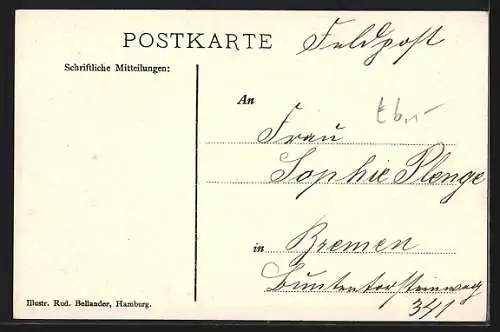 POSTKARTE
Feldpost
Schriftliche Mitteilungen:
An
Frau
Sophie Plenge
in Bremen
Buntentorsteinweg
341
Illustr. Rud. Bellander, Hamburg.